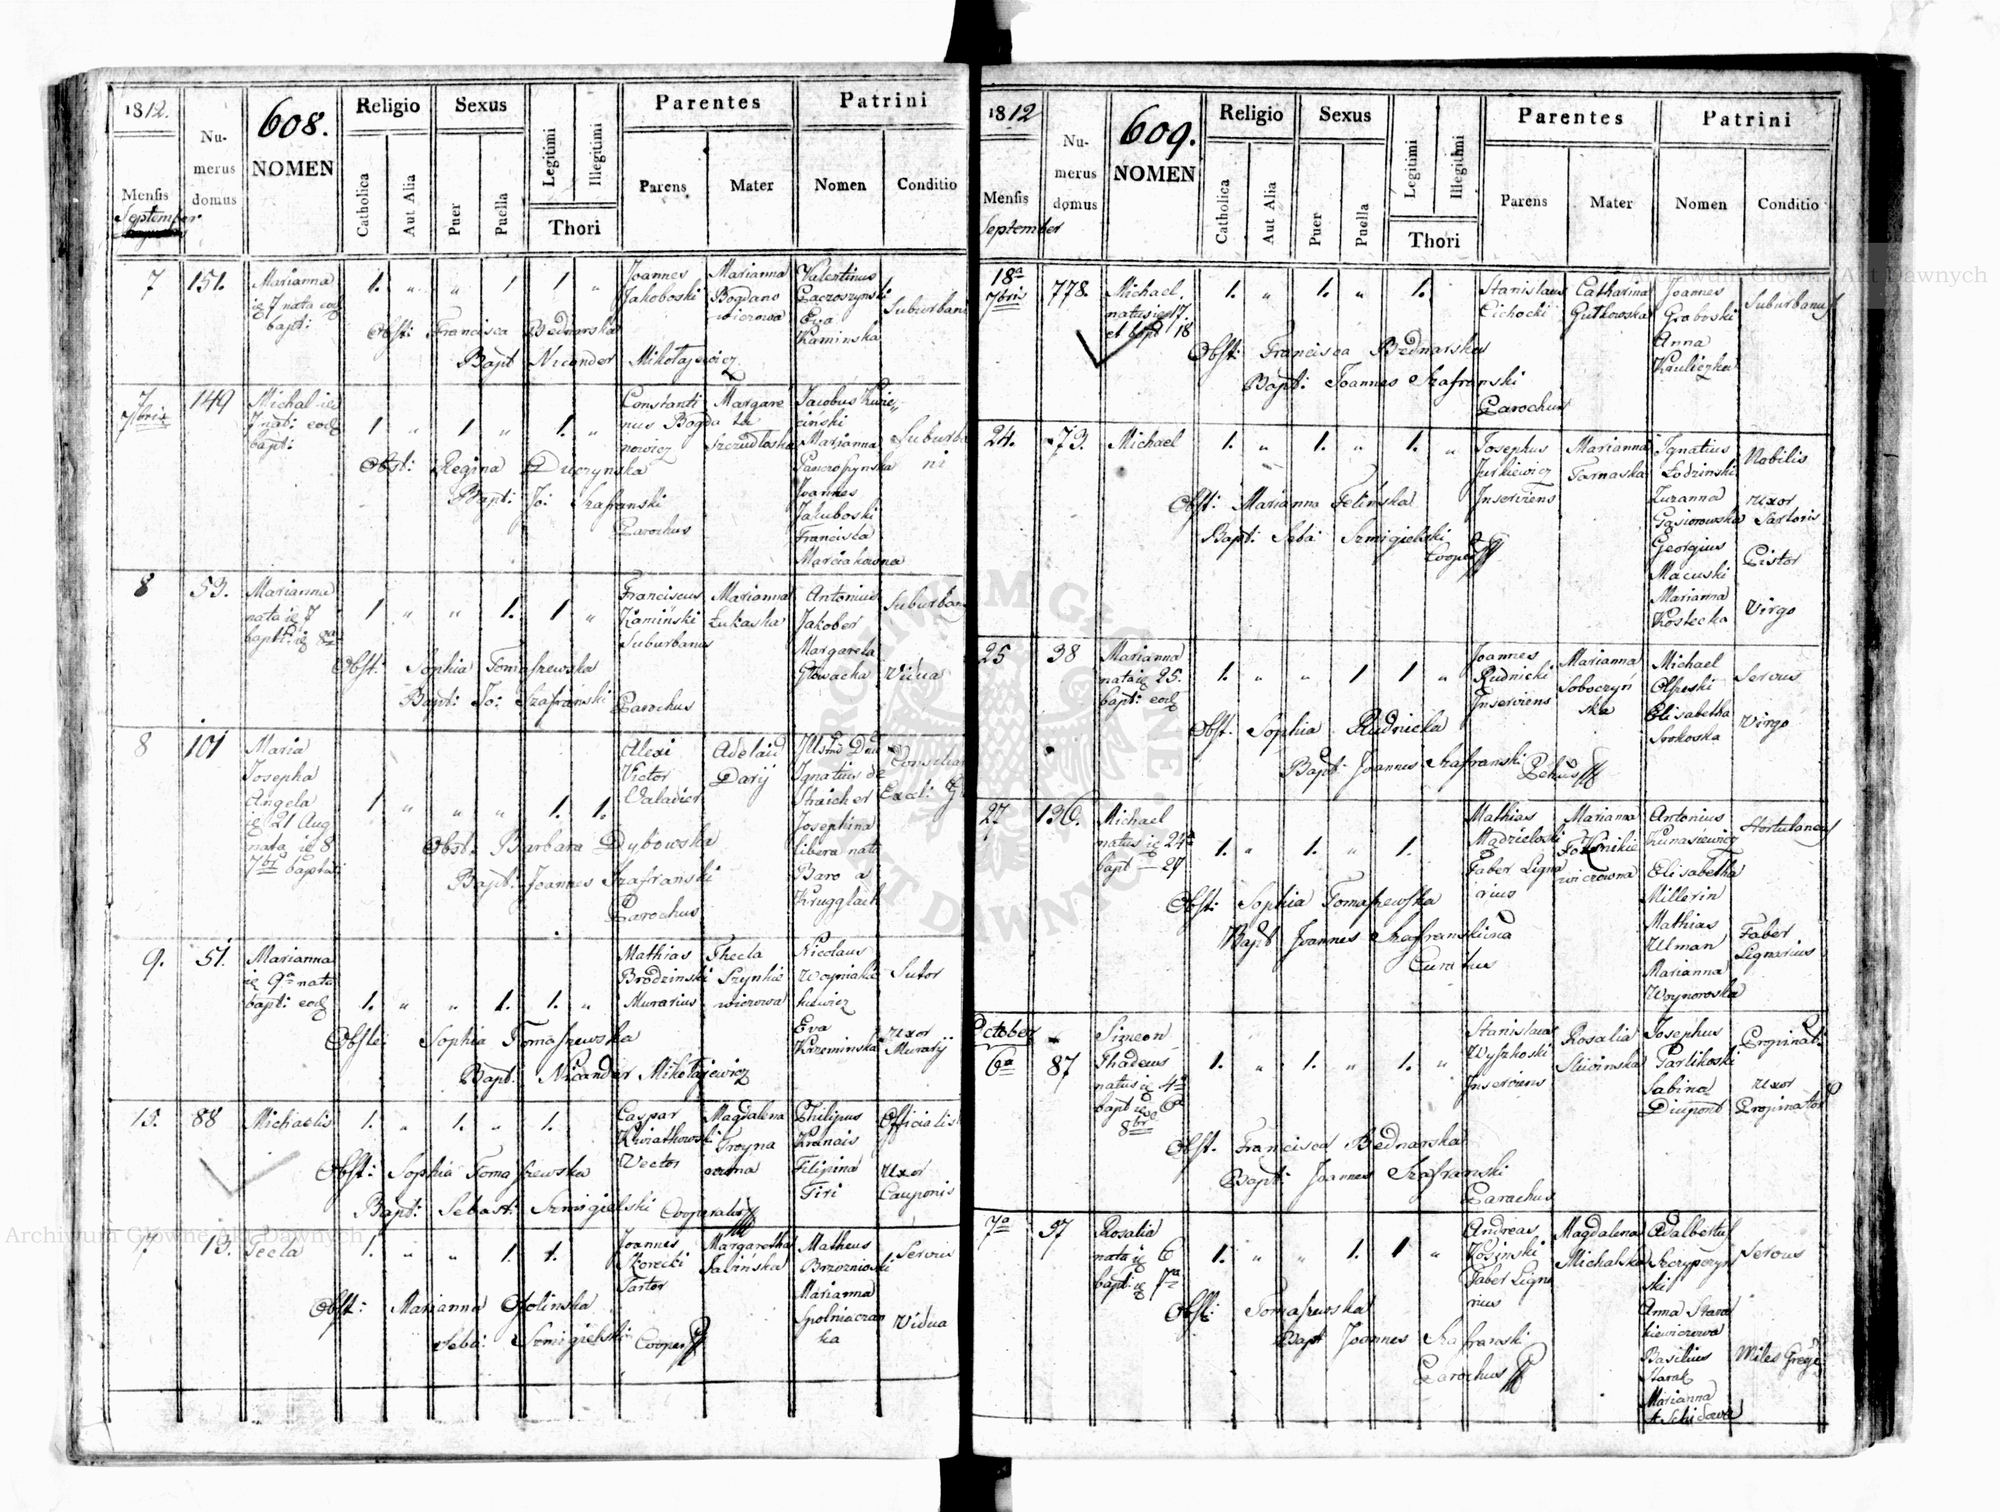 1812.
Nu-
merus
domus
608.
NOMEN
Religio
Catholica
Aut Alia
Sexus
Puer
Puella
Legitimi
Illegitimi
Thori
Parentes
Parens
Mater
Patrini
Nomen
Conditio
Mensis
September
7
151.
Marianna
ię 7 nata eod
bapt:
1. " " 1 1 "
Joannes
Jakoboski
Marianna
Bogdano
wiczowa
Valentinus
Eva
Kaminska
Suburbani
Obst: Francisca Bednarska
Bapt Nicander Mikołajewicz
7
7bris
149
7 nat: eod
bapt:
1 " 1 " 1. "
Constanti
nus Bogda
nowicz
Margare
ta
Szczudłoska
Marianna
Joannes
Jakuboski
Francisca
Marciakowna
Suburba
ni
Obst: Regina Duczynska
Bapt: Jo: Szafranski
Parochus
8
53.
Marianna
nata ię 7
bapt: ię 8va
1 " " 1. 1 "
Franciscus
Kaminski
Suburbanus
Marianna
Łukaska
Antonius
Jakober
Margareta
Głowacka
Suburban
Vidua
Obst: Sophia Tomaszewska
Bapt: Jo: Szafranski Parochus
8
101
Maria
Josepha
Angela
ię 21 Aug
nata ię 8
7bri baptis:
1 " " " 1. 1.
Alexi
Victor
Valadier
Adelaid
Darij
Ignatius de
Straicher
Josephina
libera nata
Baro a
Krugglach
Consiliar
Obst: Barbara Dybowska
Bapt: Joannes Szafranski
Parochus
9.
51.
Marianna
ię 9a nata
bapt: eod
1. " " 1. 1. "
Mathias
Brodzinski
Murarius
Thecla
Szynkie
wiczowa
Nicolaus
Woyniakie
Eva
Krzeminska
Sutor
Uxor
Murarij
Obste: Sophia Tomaszewska
Bapt: Nicander Mikołajewicz
15.
88
Michaelis
1. " 1. " 1.
Caspar
Kwiatkowski
Vector
Magdalena
Troyna
owna
Philipus
Kranais
Filipina
Tiri
Officialis
Uxor
Cauponis
Obst: Sophia Tomaszewska
Bapt: Sebast: Szmigielski Cooperator
17
13.
Tecla
1. " " 1. 1.
Joannes
Skorecki
Sartor
Margaretha
Matheus
Marianna
Spolniaczan
ka
Servus
Vidua
Obst: Marianna
Seba: Szmigielski Cooper
1812
Nu-
merus
domus
609.
NOMEN
Religio
Catholica
Aut Alia
Sexus
Puer
Puella
Legitimi
Illegitimi
Thori
Parentes
Parens
Mater
Patrini
Nomen
Conditio
Mensis
September
18a
7bris
778.
Michael
natus ię 17.
et bapt 18
1. " 1. " 1.
Stanislaus
Cichocki
Catharina
Gutkowska
Joannes
Graboski
Anna
Kauliczka
Suburbanus
Obst: Francisca Bednarska
Bapt: Joannes Szafranski
Parochus
24.
73.
Michael
1. " 1. " 1. "
Josephus
Jurkiewicz
Inserviens
Marianna
Tarnaska
Ignatius
Łodzinski
Zuzanna
Gąsiorowska
Georgius
Macuski
Marianna
Kostecka
Nobilis
Uxor
Sartoris
Pistor
Virgo
Obst: Marianna Felinska
Bapt: Seba: Szmigielski
Cooper
25
38
Marianna
nata ię 25.
bapt: eod
1. " " 1 1 "
Joannes
Rudnicki
Inserviens
Marianna
Soboczyń
ska
Michael
Olszeski
Elisabetha
Srokoska
Servus
Virgo
Obst. Sophia Rudnicka
Bapt: Joannes Szafranski
27
136.
Michael
natus ię 24a
bapt — 27
1. " 1. " 1.
Mathias
Faber Ligna
rius
Marianna
wiczowna
Antonius
Elisabetha
Millerin
Mathias
Ulman
Marianna
Woynoroska
Hortulanus
Faber
Lignarius
Obst: Sophia Tomaszewska
Bapt Joannes Szafranski
Curatus
October
6a
87
Simeon
Thadeus
natus ię 4a
bapt ię 6a
8bris
1. " 1. " 1. "
Stanislaus
Wyszkoski
Inserviens
Rosalia
Sliwinska
Josephus
Parlikoski
Sabina
Diupont
Propinat:
Uxor
Propinator
Obst. Francisca Bednarska
Bapt: Joannes Szafranski
Parochus
7a
97
Rosalia
nata ię 6
bapt: ię 7a
1. " " 1. 1 "
Andreas
Kozinski
Faber Ligna
rius
Magdalena
Michalska
Adalbertus
Szczypczyń
ski
Anna Stara
kiewiczowa
Basilius
Marianna
Servus
Miles
Obst: Tomaszewska
Bapt Joannes Szafranski
Parochus
Archiwum Główne Akt Dawnych
Archiwum Główne Akt Dawnych
ARCHIWUM GŁÓWNE AKT DAWNYCH